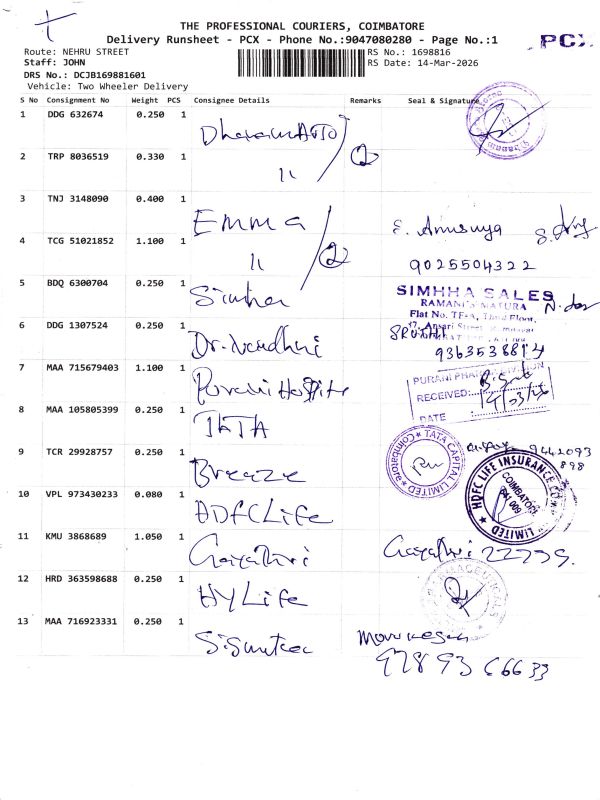 THE PROFESSIONAL COURIERS, COIMBATORE
Delivery Runsheet - PCX - Phone No.:9047080280 - Page No.:1
PCX
Route: NEHRU STREET
RS No.: 1698816
Staff: JOHN
RS Date: 14-Mar-2026
DRS No.: DCJB169881601
Vehicle: Two Wheeler Delivery
S No Consignment No Weight PCS Consignee Details Remarks Seal & Signature
1 DDG 632674 0.250 1
2 TRP 8036519 0.330 1 11 2
3 TNJ 3148090 0.400 1 Emma E. Anusuya
4 TCG 51021852 1.100 1 11 2 9025504322
5 BDQ 6300704 0.250 1 Simha
SIMHHA SALES
RAMANI'S MAYURA
Flat No. TF-A, Third Floor,
6 DDG 1307524 0.250 1 SRUTHI
9363538814
7 MAA 715679403 1.100 1 Purani Hospita
PURANI PHARMA DIVISION
RECEIVED: 14/03/26
DATE
8 MAA 105805399 0.250 1 TATA
TATA CAPITAL LIMITED
Coimbatore
9 TCR 29928757 0.250 1 Breeze 9442093
898
10 VPL 973430233 0.080 1 HDFC Life
HDFC LIFE INSURANCE CO. LIMITED
COIMBATORE
641 009
11 KMU 3868689 1.050 1 Gayathri Gayathri
12 HRD 363598688 0.250 1 HY Life
13 MAA 716923331 0.250 1
97893 66633